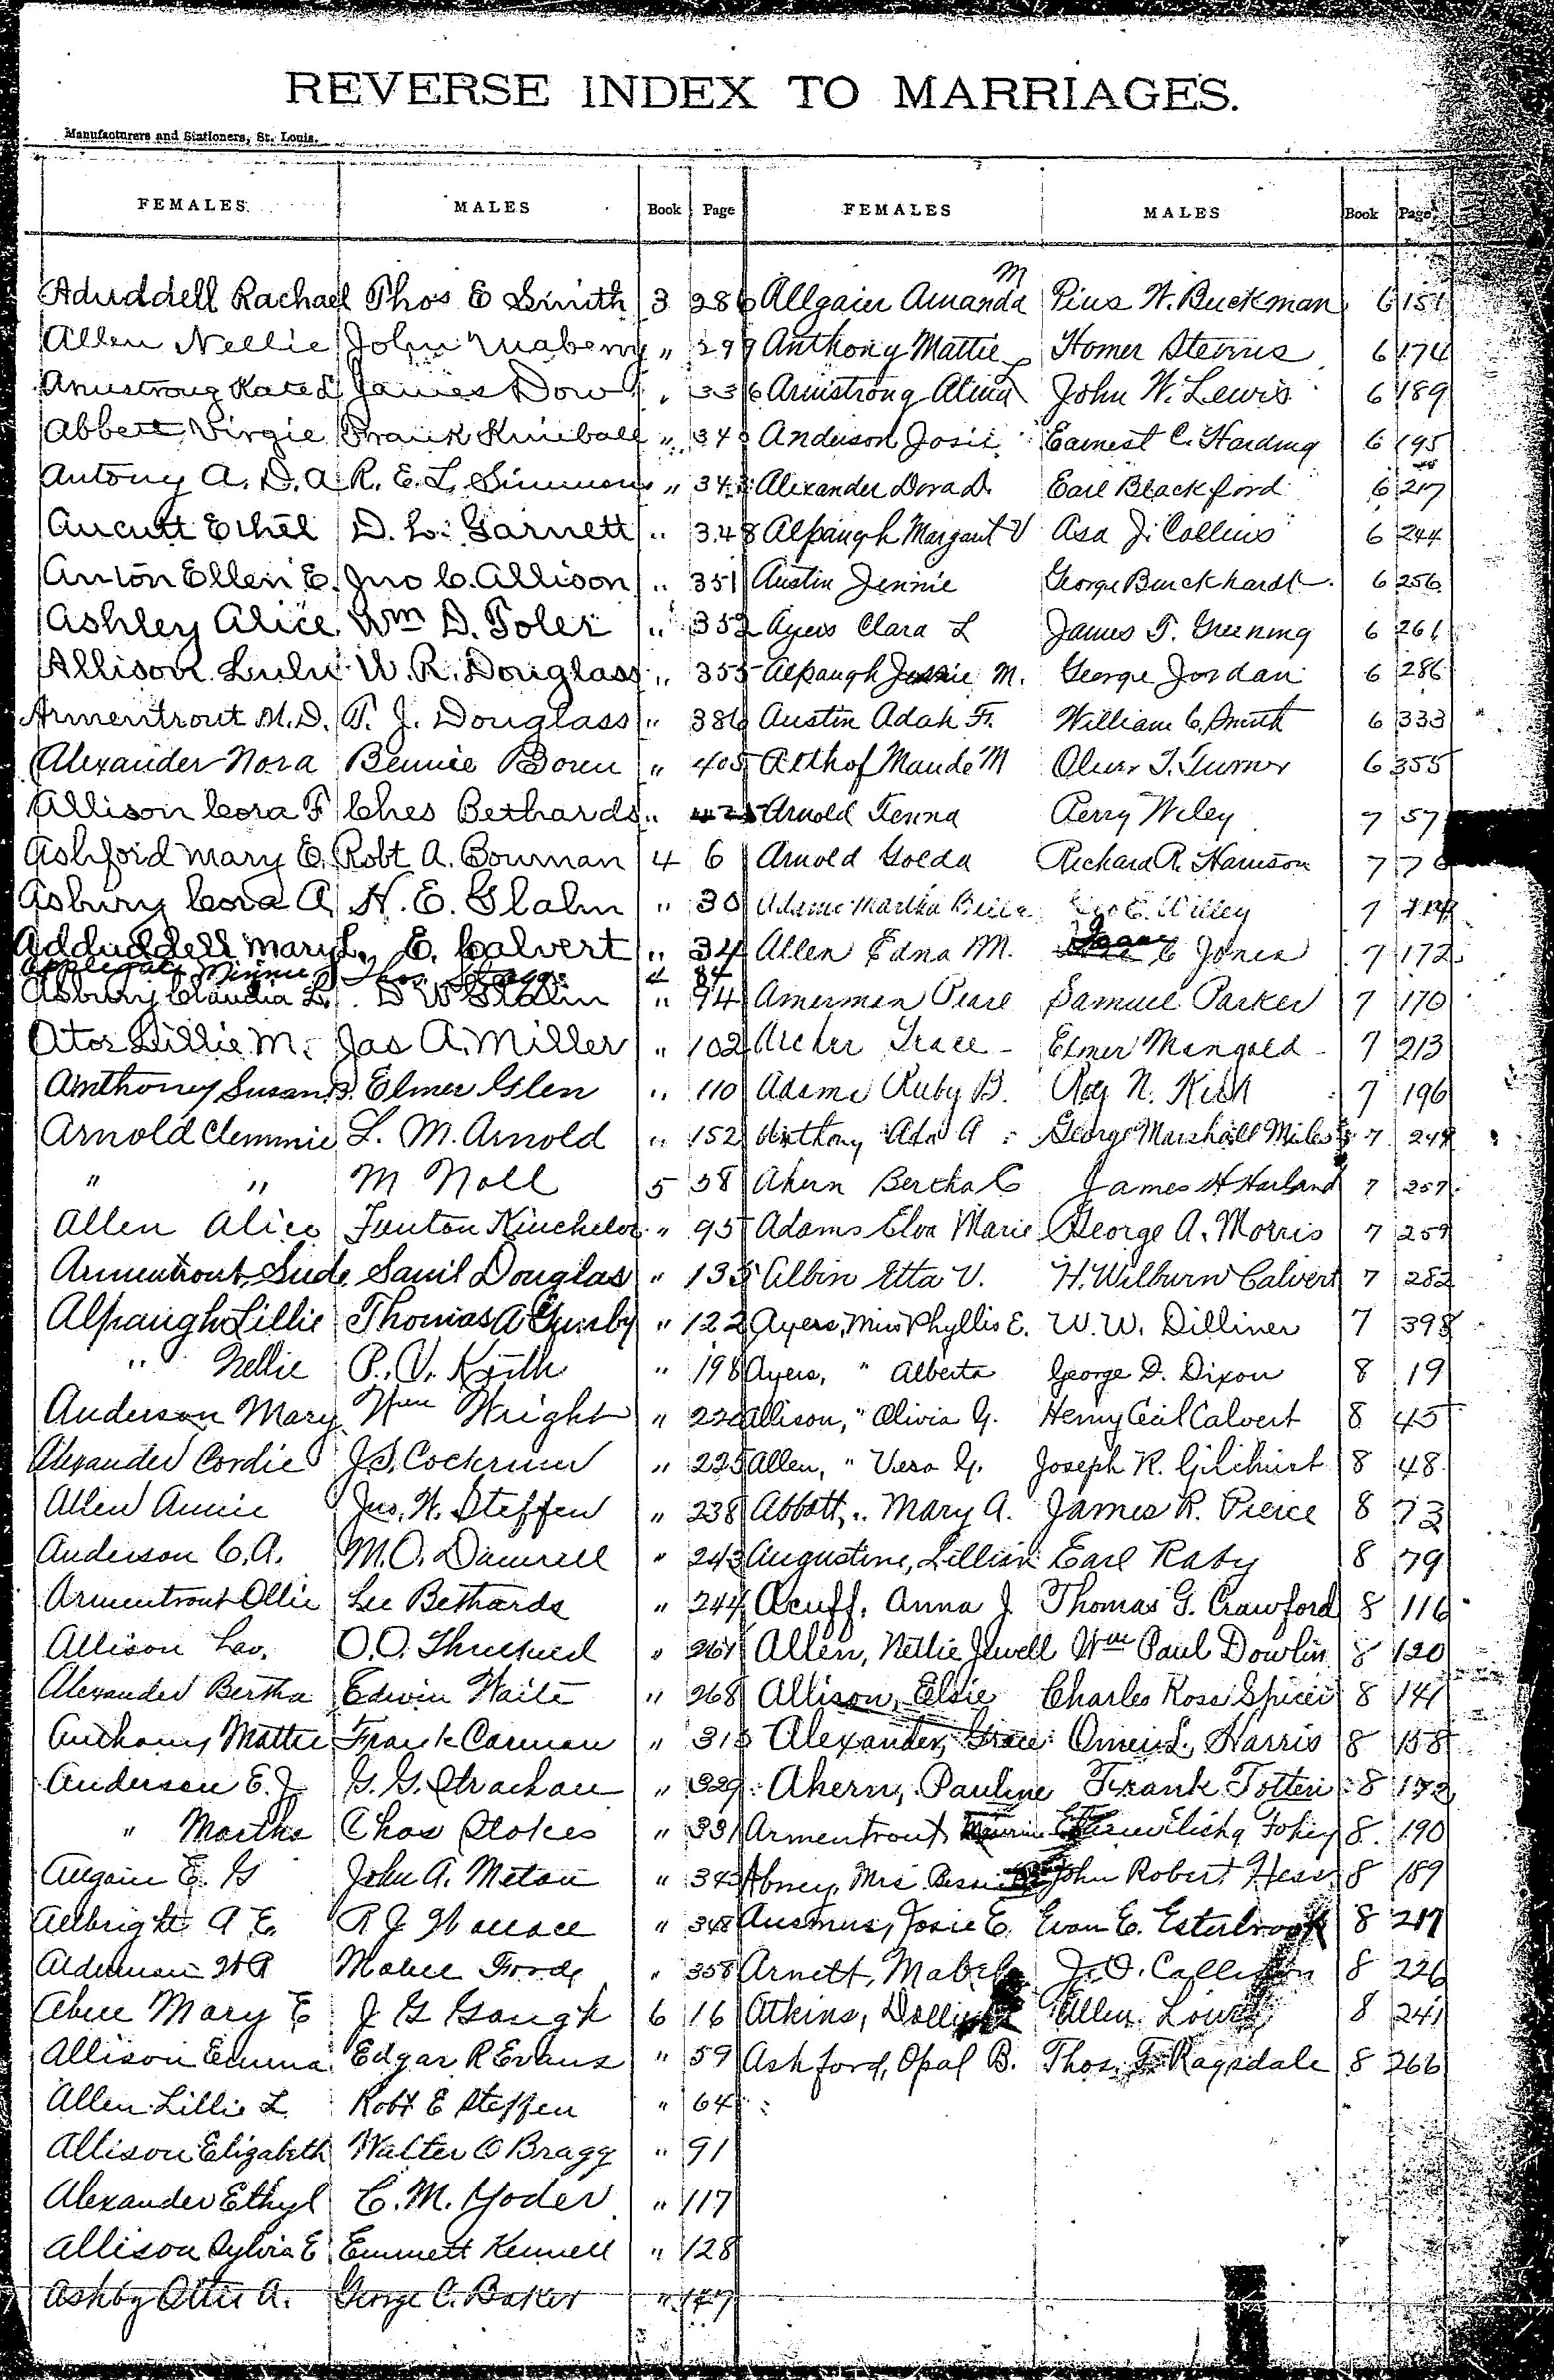 REVERSE INDEX TO MARRIAGES.
Manufacturers and Stationers, St. Louis.
FEMALES MALES Book Page FEMALES MALES Book Page
Aduddell Rachael Thos E Smith 3 286
Allen Nellie John Maberry " 299
Armstrong Kate L James Dow " 336
Abbett Virgie Frank Kimball " 34
Antony A. D. A R. E. L. Simmons " 343
Aucutt Ethel D. L. Garnett " 348
Anton Ellen E. Jno C. Allison " 351
Ashley Alice Wm D. Toler " 352
Allison Lulu W. R. Douglass " 355
Armentrout M. D. T. J. Douglass " 386
Alexander Nora Bennie Boren " 405
Allison Cora F Ches Bethards " 425
Ashford Mary E. Robt A. Bowman 4 6
Asbury Cora A H. E. Glahn " 30
Adduddell Mary L. E. Calvert " 34
Applegate Minnie Thos " 84
Asbury Claudia L. D W Glahn " 94
Ator Lillie M. Jas A. Miller " 102
Anthoney Susan B. Elmer Glen " 110
Arnold Clemmie L. M. Arnold " 152
" " M Noll 5 58
Allen Alice Fenton Kincheloe " 95
Armentrout Sude Saml Douglas " 135
Alpaugh Lillie Thomas A Gunby " 122
" Nellie P. V. Keith " 198
Anderson Mary Wm Wright " 220
Alexander Cordie J. S. Cockrum " 225
Allen Annie Jno. W. Steffen " 238
Anderson C. A. M. O. Damrell " 243
Armentrout Ollie Lee Bethards " 244
Allison Lav. O. O. Threlkeld " 261
Alexander Bertha Edwin Waite " 268
Anthony Mattie Frank Carman " 315
Anderson E. J G. G. Strachan " 329
" Martha Chas Stokes " 331
E. G John A. " 343
Allbright A E. R J Wallace " 348
Alderman W A Mabel Ford " 358
Abell Mary E J G Gough 6 16
Allison Emma Edgar R Evans " 59
Allen Lillie L Robt E Steffen " 64
Allison Elizabeth Walter O Bragg " 91
Alexander Ethyl C. M. Yoder " 117
Allison Sylvia E Emmett Kennell " 128
Ashby Ottie A. George C. Baker " 147
Allgaier Amanda M Pius W. Buckman 6 151
Anthony Mattie Homer Sterns 6 174
Armstrong Alma John W. Lewis 6 189
Anderson Josie Earnest C. Harding 6 195
Alexander Dora D. Earl Blackford 6 217
Alpaugh Margaret V Asa J. Collins 6 244
Austin Jennie George Burckhardt 6 256
Ayers Clara L James T. Greening 6 261
Alpaugh Jessie M. George Jordan 6 286
Austin Adah F. William C. Smith 6 333
Althof Maude M Oliver T. Turner 6 355
Arnold Fenna Perry Wiley 7 57
Arnold Golda Richard R. Harrison 7 76
Adams Martha Belle Geo E. Willey 7 114
Allen Edna M. Isaac C Jones 7 172
Amerman Pearl Samuel Parker 7 170
Archer Grace Elmer Mangold 7 213
Adams Ruby B. Roy N. Kish 7 196
Anthony Ada A George Marshall Miles 7 249
Ahern Bertha C James H Harland 7 257
Adams Elva Marie George A. Morris 7 259
Albin Etta V. H. Wilburn Calvert 7 282
Ayers, Miss Phyllis E. W. W. Dilliner 7 398
Ayers, " Alberta George D. Dixon 8 19
Allison, " Olivia G. Henry Cecil Calvert 8 45
Allen, " Vera G. Joseph R. Gilchrist 8 48
Abbott, " Mary A. James R. Pierce 8 73
Augustine, Lillian Earl Raby 8 79
Acuff, Anna J. Thomas G. Crawford 8 116
Allen, Nettie Jewell Wm Paul Dowlin 8 120
Allison, Elsie Charles Ross Spicer 8 141
Alexander, Grace Omer L. Harris 8 158
Ahern, Pauline Frank Totten 8 172
Armentrout 8 190
Abney, Mrs John Robert Hess 8 189
Ausmus, Josie E. Evan E. Esterbrook 8 217
Arnett, Mabel J. O. Callison 8 226
Atkins, Dollie Allen Lowe 8 241
Ashford, Opal B. Thos. F. Ragsdale 8 266